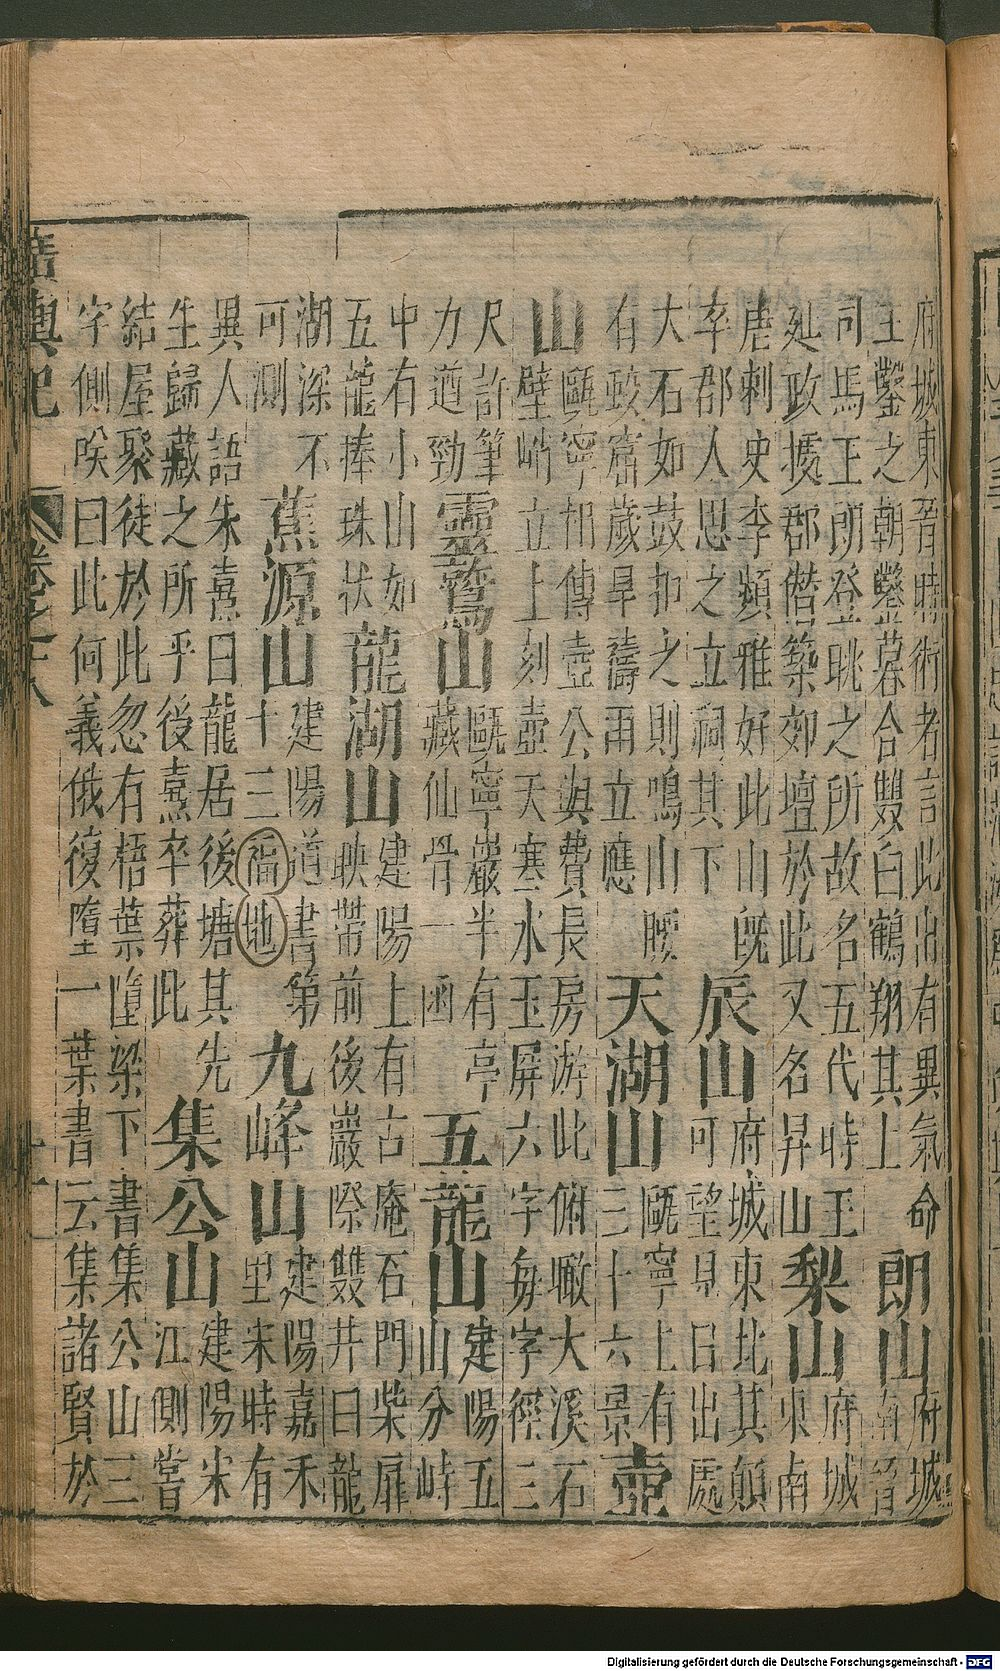 府城東晉時術者言此出有異氣命王鑿之朝鑿暮合雙白鶴翔其上朗山府城南晉
司馬王朗登眺之所故名五代時王延政據郡僣築郊壇於此又名昇山梨山府城東南
唐刺史李頻雅好此山旣卒郡人思之立祠其下辰山府城東北其顛可望見日出處
大石如鼓扣之則鳴山腰有蛟窟歲旱禱雨立應天湖山甌寧上有三十六景壺
山甌寧相傳壺公與費長房游此俯瞰大溪石壁峭立上刻壺天寒水玉屏六字每字徑三
尺許筆力遒勁靈鷲山甌寧巖半有亭藏仙骨一函五龍山建陽五山分峙
中有小山如五龍捧珠狀龍湖山建陽上有古庵石門柴扉映帶前後巖際雙井曰龍
湖深不可測蕉源山建陽道書第十三福地九峰山建陽嘉禾里宋時有
異人語朱熹曰龍居後塘其先生歸藏之所乎後熹卒葬此集公山建陽宋江側嘗
結屋聚徒於此忽有梧葉墮梁下書集公山三字側俟曰此何義俄復墮一葉書云集諸賢於
廣輿記 卷之十八 十一
Digitalisierung gefördert durch die Deutsche Forschungsgemeinschaft - DFG